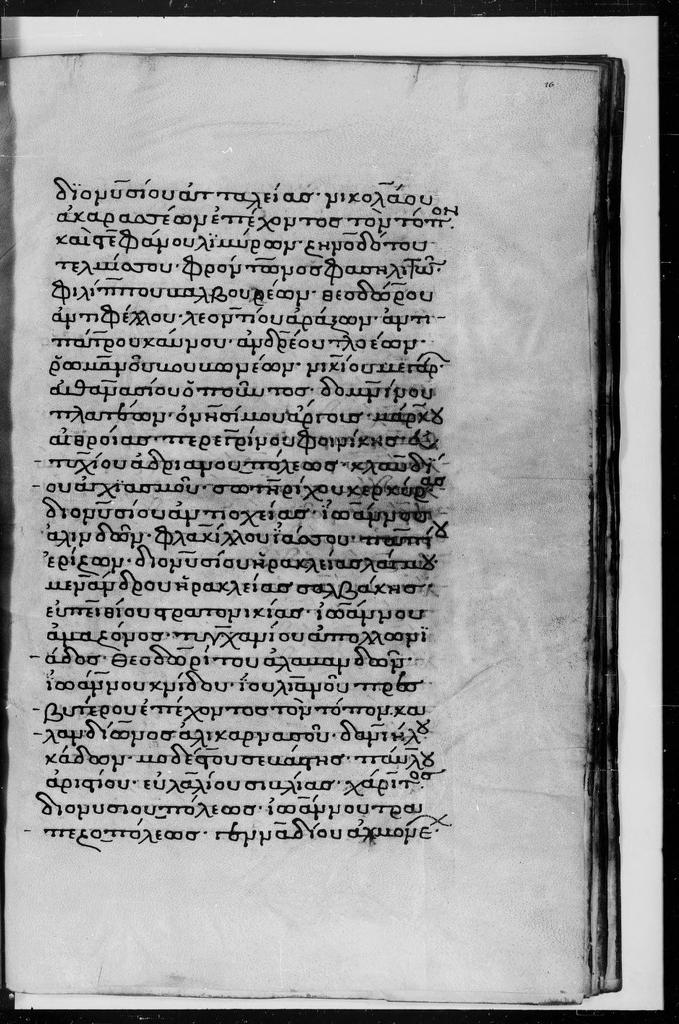 16
διονυσίου ἀτταλείας· νικολάου
ἀκαρασσέων ἐπέχοντος τὸν τόπον·
καὶ στεφάνου λιμύρων· ζηνοδότου
τελμισσοῦ· φρόντωνος φασηλιτῶν·
φιλίππου μαλβουρέων· θεοδώρου
ἀντιφέλλου· λεοντίου ἀράξων· ἀντι
πάτρου καύνου· ἀνδρέου τλοέων·
ῥωμανοῦ νουμωνέων· νικίου μεγάρ·
ἀθανασίου ὀποῦντος· δομνίνου
πλαταιῶν· ὀνησίμου ἄργους· μάρκου
αἰθροίας· περεγρίνου φοινίκης· εὐ
τυχίου ἀδριανουπόλεως· κλαυδί
ου ἀγχιασμοῦ· σωτηρίχου κερκύρας
διονυσίου ἀντιοχείας· ἰωάννου
ἀλινδῶν· φλακίλλου ἰάσσου· παπίου
ἐρίζων· διονυσίου ἡρακλείας λάτμου
μενάνδρου ἡρακλείας σαλβάκης·
εὐπειθίου στρατονικίας· ἰωάννου
ἀμαζόνος· τυγχανίου ἀπολλωνι
άδος· θεοδωρίτου ἀλαβανδῶν·
ἰωάννου κνίδου· ἰουλιανοῦ πρεσ
βυτέρου ἐπέχοντος τὸν τόπον κα
λανδίωνος ἀλικαρνασοῦ· δανιὴλου
κάδων· μοδέστου σεβάστης· παύλου
ἀριστίου· εὐλαλίου σιβλίας· χάριτος
διονυσιουπόλεως· ἰωάννου τρα
πεζοπόλεως· γενναδίου ἀκμονε·